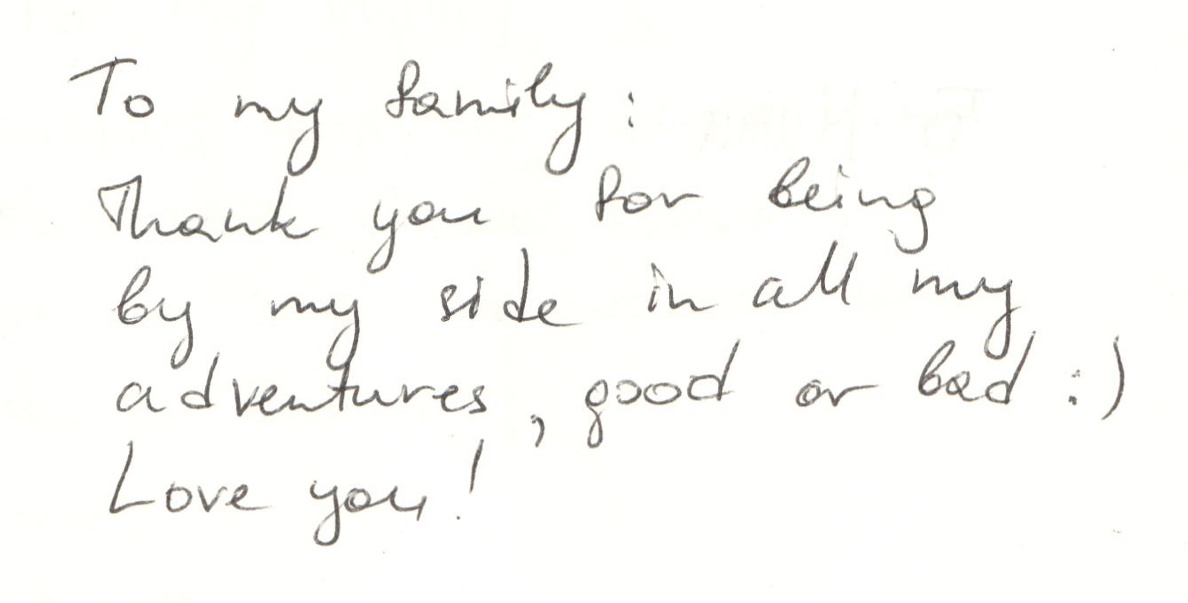 To my family:
Thank you for being
by my side in all my
adventures, good or bad :)
Love you!